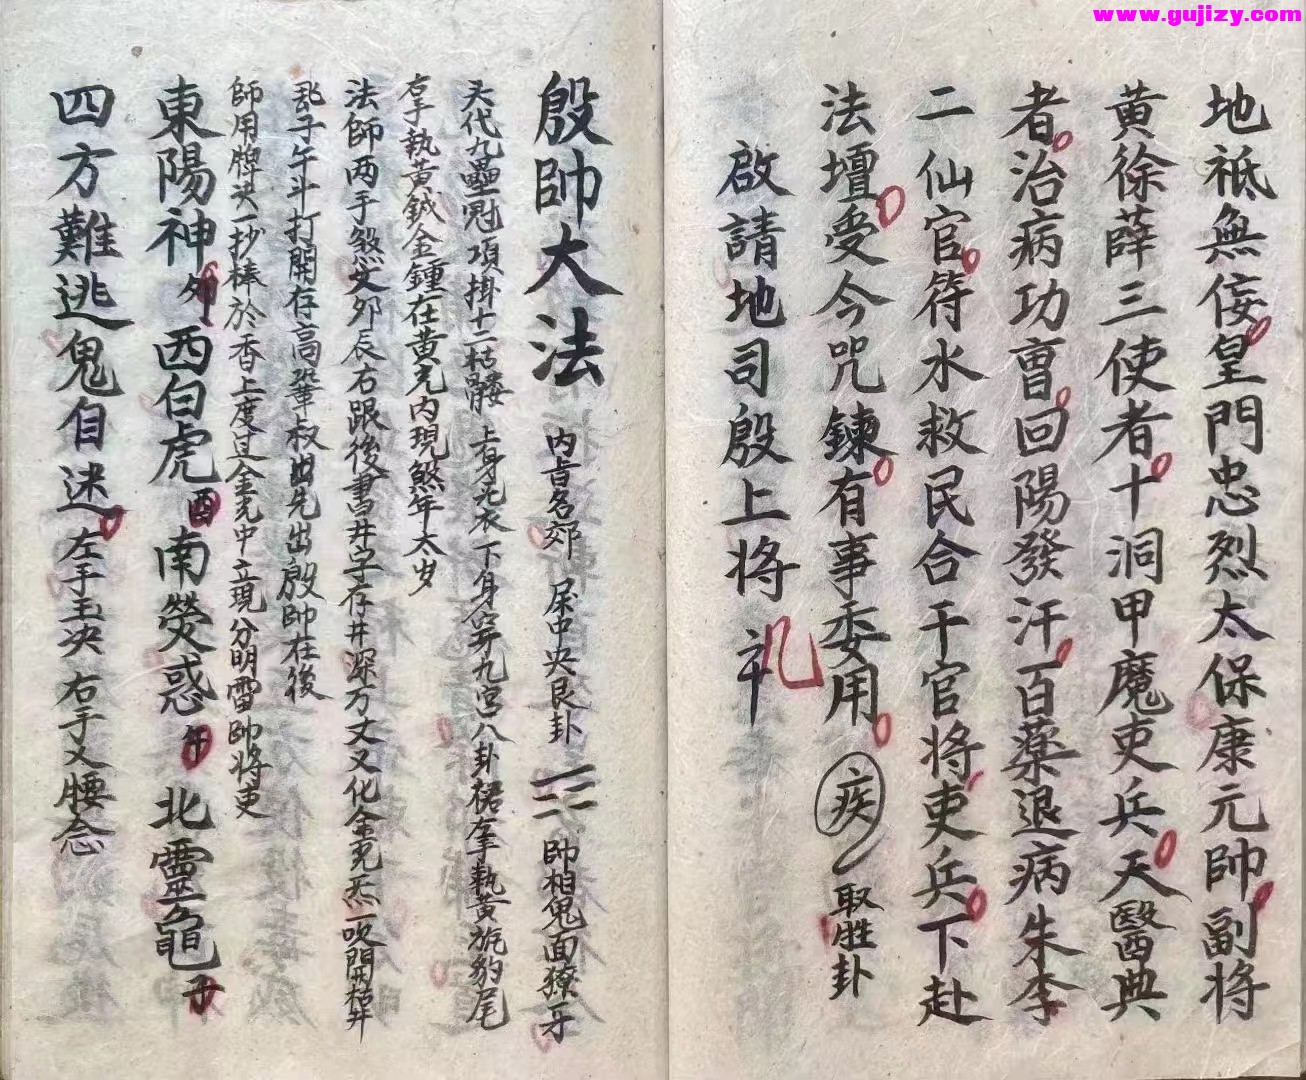 www.gujizy.com
地祇無佞皇門忠烈太保康元帥副将
黄徐薛三使者十洞甲魔吏兵天醫典
者治病功曺回陽發汗百薬退病朱李
二仙官符水救民合干官将吏兵下赴
法壇受今咒鍊有事委用 疾 取胜卦
啟請地司殷上将
殷帥大法 内旨名郊 屎中央艮卦 帥相鬼面獠牙
天代九壘冠項掛十二骷髏 上身光衣下身穿九宫八卦裙左手執黄旂豹尾
右手執黄鉞金鍾在黄光内現煞年太岁
法師两手煞文夘辰右跟後書井字存井深万丈又化金光炁一吹開枯井
乱子午斗打開存高鞏叔出先出殷帥在後
師用牌决一抄棒於香上度过金光中立現分明雷帥将吏
東陽神夘西白虎酉南熒惑午北靈龜子
四方難逃鬼自迷 左手玉决右手乂腰念